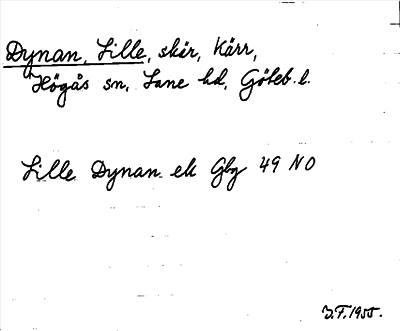 Dynan, Lille, skär, Kärr,
Högås sn, Lane hd, Göteb. l.
Lille Dynan ek Gbg 49 NO
J.F. 1955.